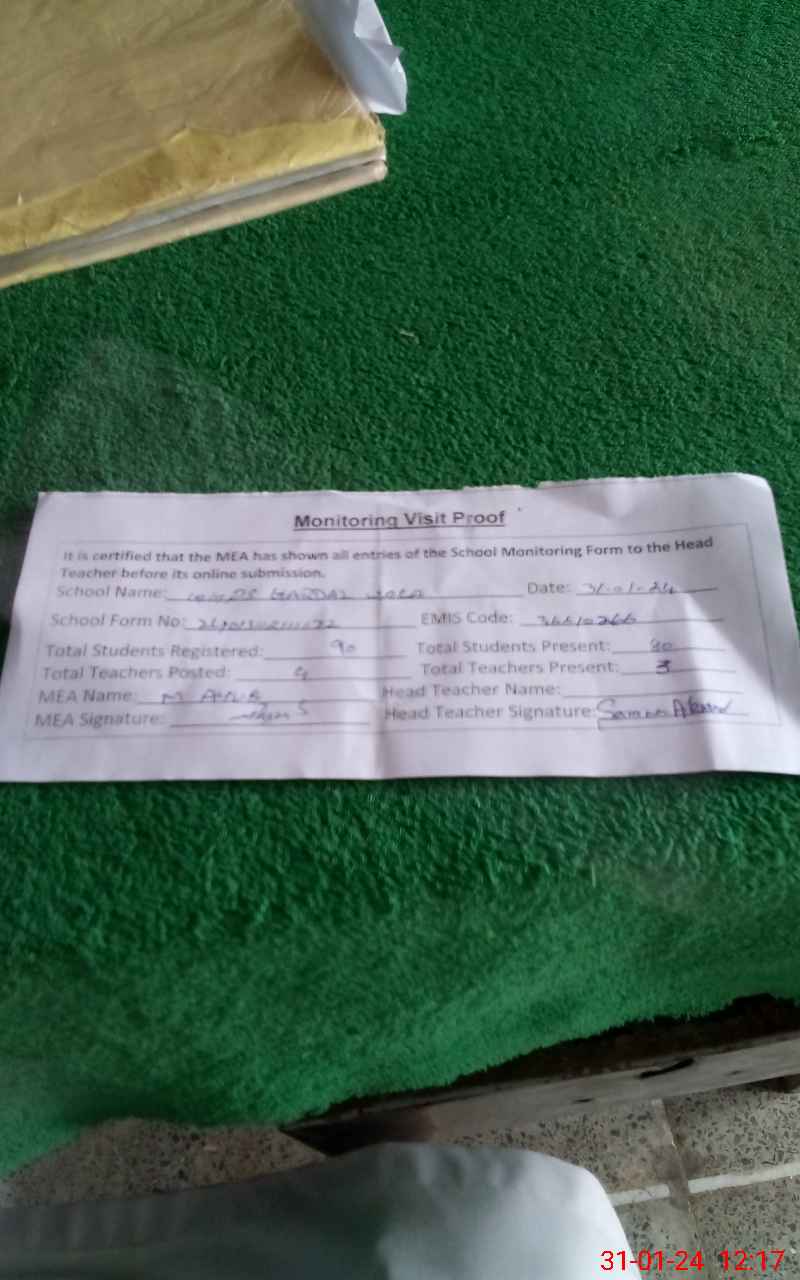 Monitoring Visit Proof
It is certified that the MEA has shown all entries of the School Monitoring Form to the Head
Teacher before its online submission.
School Name: Date: 31-01-24
School Form No: EMIS Code: 36610266
Total Students Registered: 90 Total Students Present: 80
Total Teachers Posted: 4 Total Teachers Present: 3
MEA Name: M Head Teacher Name:
MEA Signature: Head Teacher Signature:
31-01-24 12:17